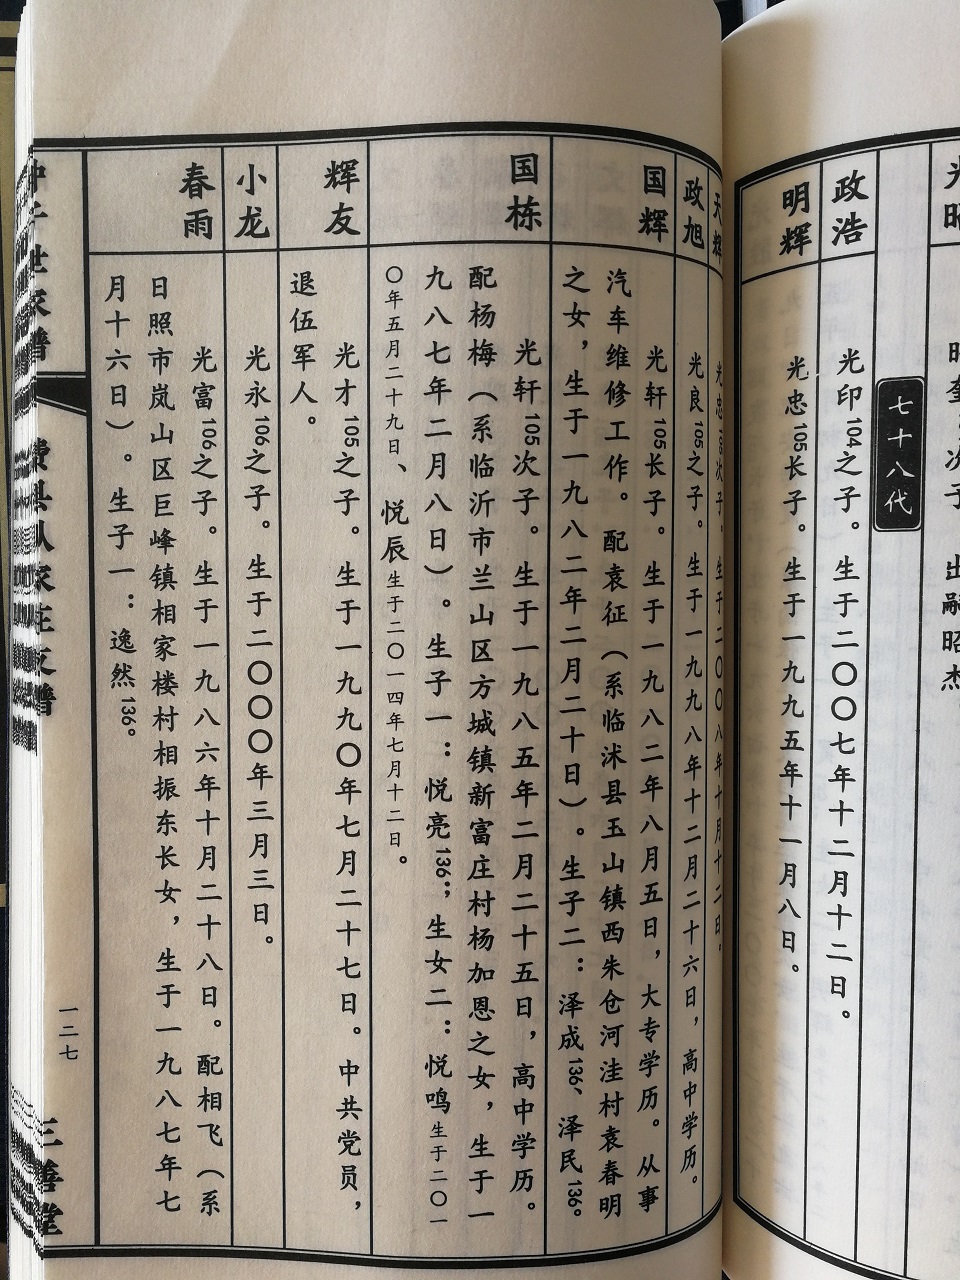 七十八代
政浩
光印104之子。生于二〇〇七年十二月十二日。
明辉
光忠105长子。生于一九九五年十一月八日。
天辉
光忠105次子。生于二〇〇八年十月十二日。
政旭
光良105之子。生于一九九八年十二月二十六日，高中学历。
国辉
光轩105长子。生于一九八二年八月五日，大专学历。从事
汽车维修工作。配袁征（系临沭县玉山镇西朱仓河洼村袁春明
之女，生于一九八二年二月二十日）。生子二：泽成136、泽民136。
国栋
光轩105次子。生于一九八五年二月二十五日，高中学历。
配杨梅（系临沂市兰山区方城镇新富庄村杨加恩之女，生于一
九八七年二月八日）。生子一：悦亮136；生女二：悦鸣生于二〇一
〇年五月二十九日、悦辰生于二〇一四年七月十二日。
辉友
光才105之子。生于一九九〇年七月二十七日。中共党员，
退伍军人。
小龙
光永106之子。生于二〇〇〇年三月三日。
春雨
光富106之子。生于一九八六年十月二十八日。配相飞（系
日照市岚山区巨峰镇相家楼村相振东长女，生于一九八七年七
月十六日）。生子一：逸然136。
世家谱
一二七
三善堂